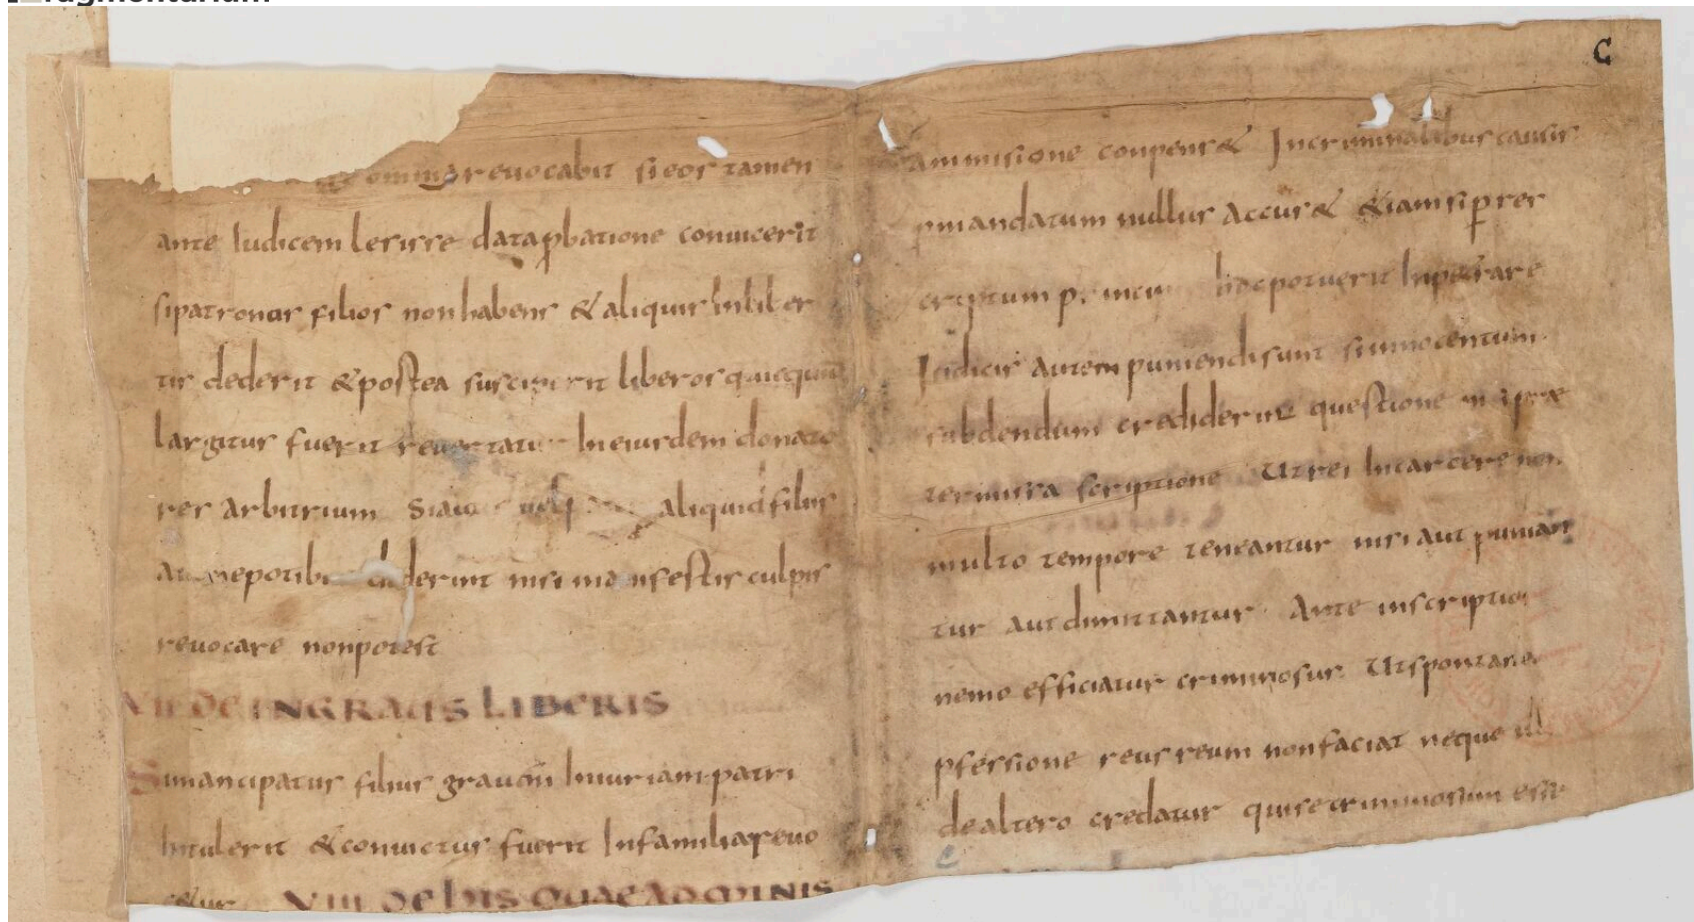 omnia revocabit si eos tamen
ante Iudicem lesisse data pbatione convicerit
si patronus filios non habens & aliquis In liber
tis dederit & postea susciperit liberos quicquid
largitus fuerit revertatur In eiusdem donato
res arbitrium Si aliquid filiis
nepotibus dederint nisi manifestis culpis
revocare non potest
VII DE INGRATIS LIBERIS
Si mancipatus filius gravem Iniuriam patri
Intulerit & convictus fuerit In familia revo
c&ur VIII DE hIS QUAE ADMINIS
C
ammisione conpens& In criminalibus causis
p mandatum nullus accus& &iam si p res
criptum potuerit Inpetrare
Iudicis autem puniendi sunt si innocentum
subdendum crediderint questione
termissa scriptione Ut rei In carcere non
multo tempore teneantur nisi aut punian
tur aut dimittantur Ante inscription
nemo efficiatur criminosus Ut spontanea
pfessione reus reum non faciat neque
de altero credatur qui se criminosum esse